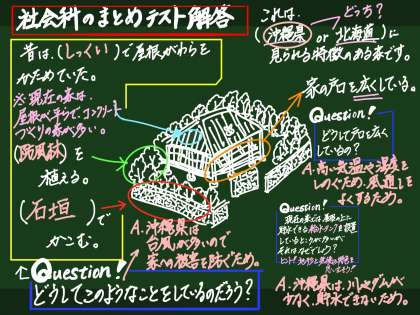 社会科のまとめテスト解答
これは、
どっち?
(沖縄県 or 北海道)に
見られる特徴のある家です。
昔は、(しっくい)で屋根がわらを
かためていた。
※現在の家は、
屋根が平らで、コンクリート
づくりの家が多い。
(防風林)を
植える。
(石垣)で
かこむ。
家の戸口を広くしている。
Question!
どうして戸口を広く
しているの?
A.高い気温や湿度を
しのぐため、風通しを
よくするため。
Question!
現在の家では屋根の上に
貯水できる給水タンクを設置
しているところが多いが、
それはなぜでしょう?
A.沖縄県は、川やダムが
少なく、貯水できないため。
A.沖縄県は
台風が多いので
家への被害を防ぐため。
Question!
どうしてこのようなことをしているのだろう?